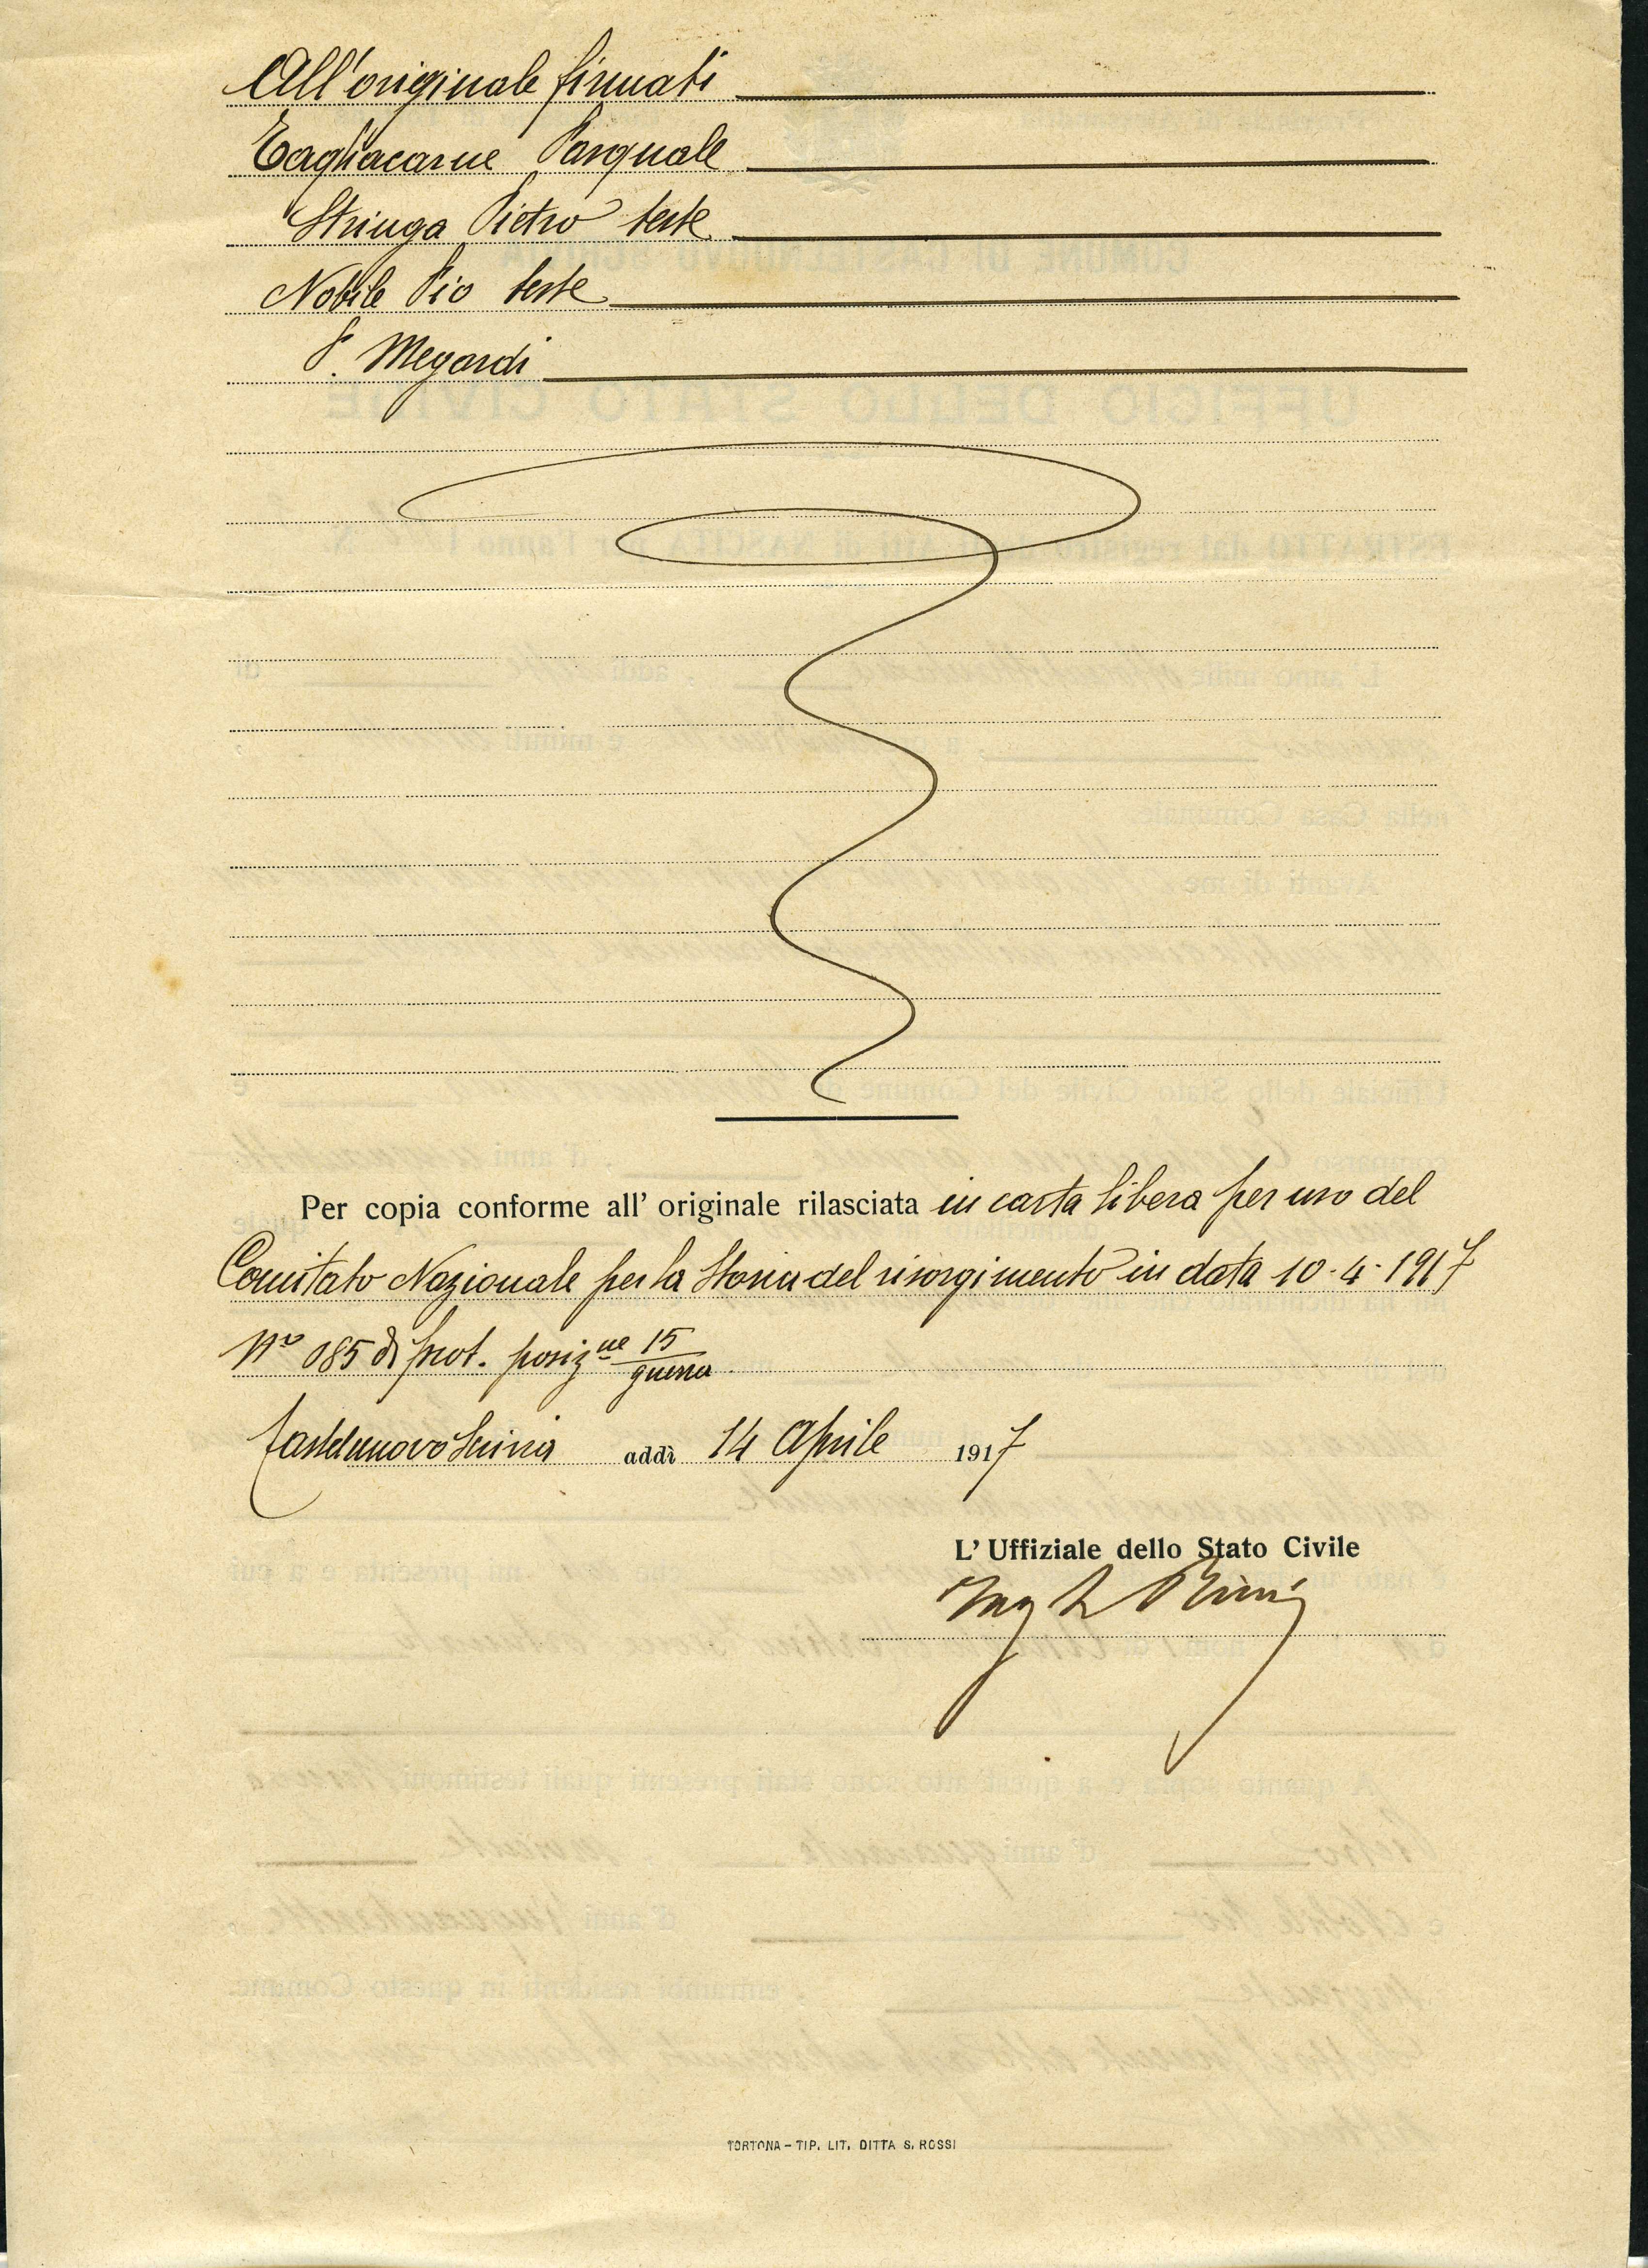 All'originale firmati
Tagliacarne Pasquale
Stringa Pietro teste
Nobile Pio teste
P. Megardi
Per copia conforme all' originale rilasciata in carta libera per uso del
Comitato Nazionale per la Storia del risorgimento in data 10-4-1917
N° 085 di prot. posizne 15
guerra
Castelnuovo Scrivia addì 14 Aprile 1917
L' Uffiziale dello Stato Civile
Ing
TORTONA - TIP. LIT. DITTA S. ROSSI